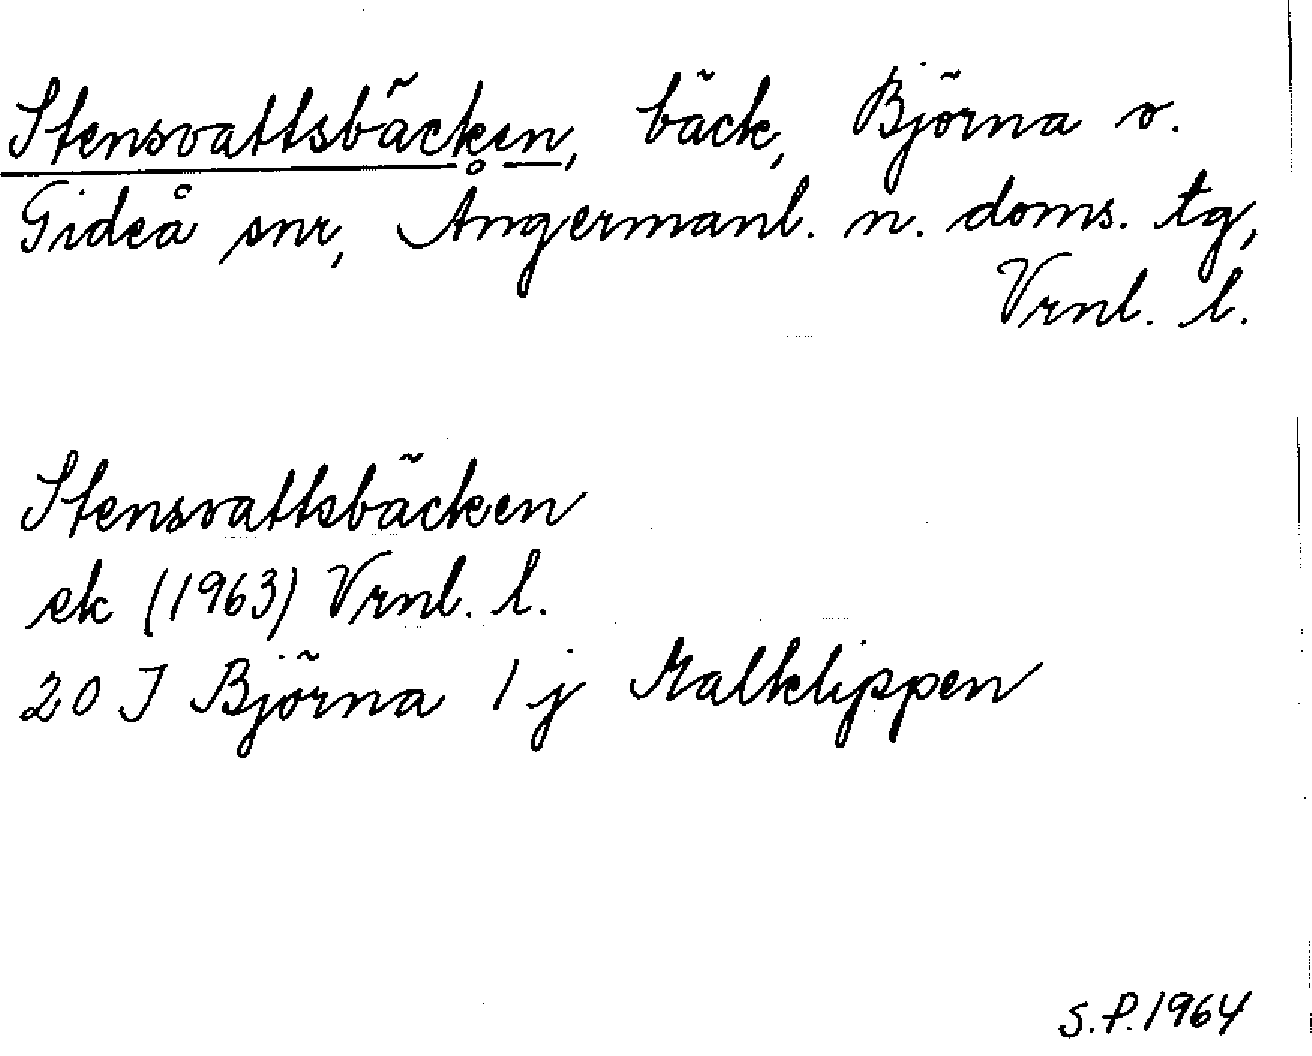 Stensvattsbäcken, bäck, Björna o.
Gideå snr, Ångermanl. n. doms. tg,
Vrnl. l.
Stensvattsbäcken
ek (1963) Vrnl. l.
20 J Björna 1 j Malklippen
S.P. 1964